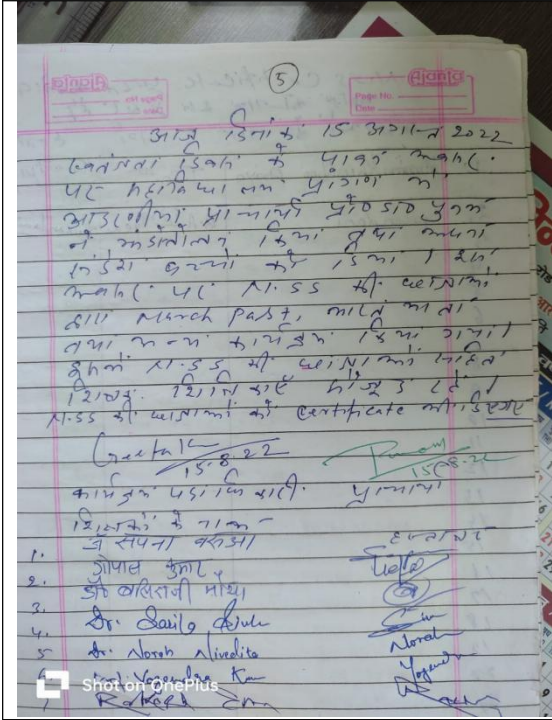 5
Ajanta
Page No.
Date
आज दिनांक 15 अगस्त 2022
स्वतंत्रता दिवस के पावन अवसर
पर महाविद्यालय प्रांगण में
आदरणीया प्राचार्या प्रो० डा० पुनम
ने झंडोतोलन किया तथा अपना
संदेश बच्चों को दिया। इस
अवसर पर N.SS की छात्राओं
द्वारा March Past, भारत माता
तथा अन्य कार्यक्रम किया गया।
इसमें N.SS की छात्राओं सहित
शिक्षक
N.SS की छात्राओं को certificate भी दिए गए
15.8.22
15-08-22
कार्यक्रम पदाधिकारी. प्राचार्या
शिक्षकों के नाम - हस्ताक्षर
1. डॉ सपना बरुआ
2. गोपाल कुमार
3. डॉ
4. Dr.
5 Dr. Norah Nivedita Norah
6 Yogendra
7
Shot on OnePlus